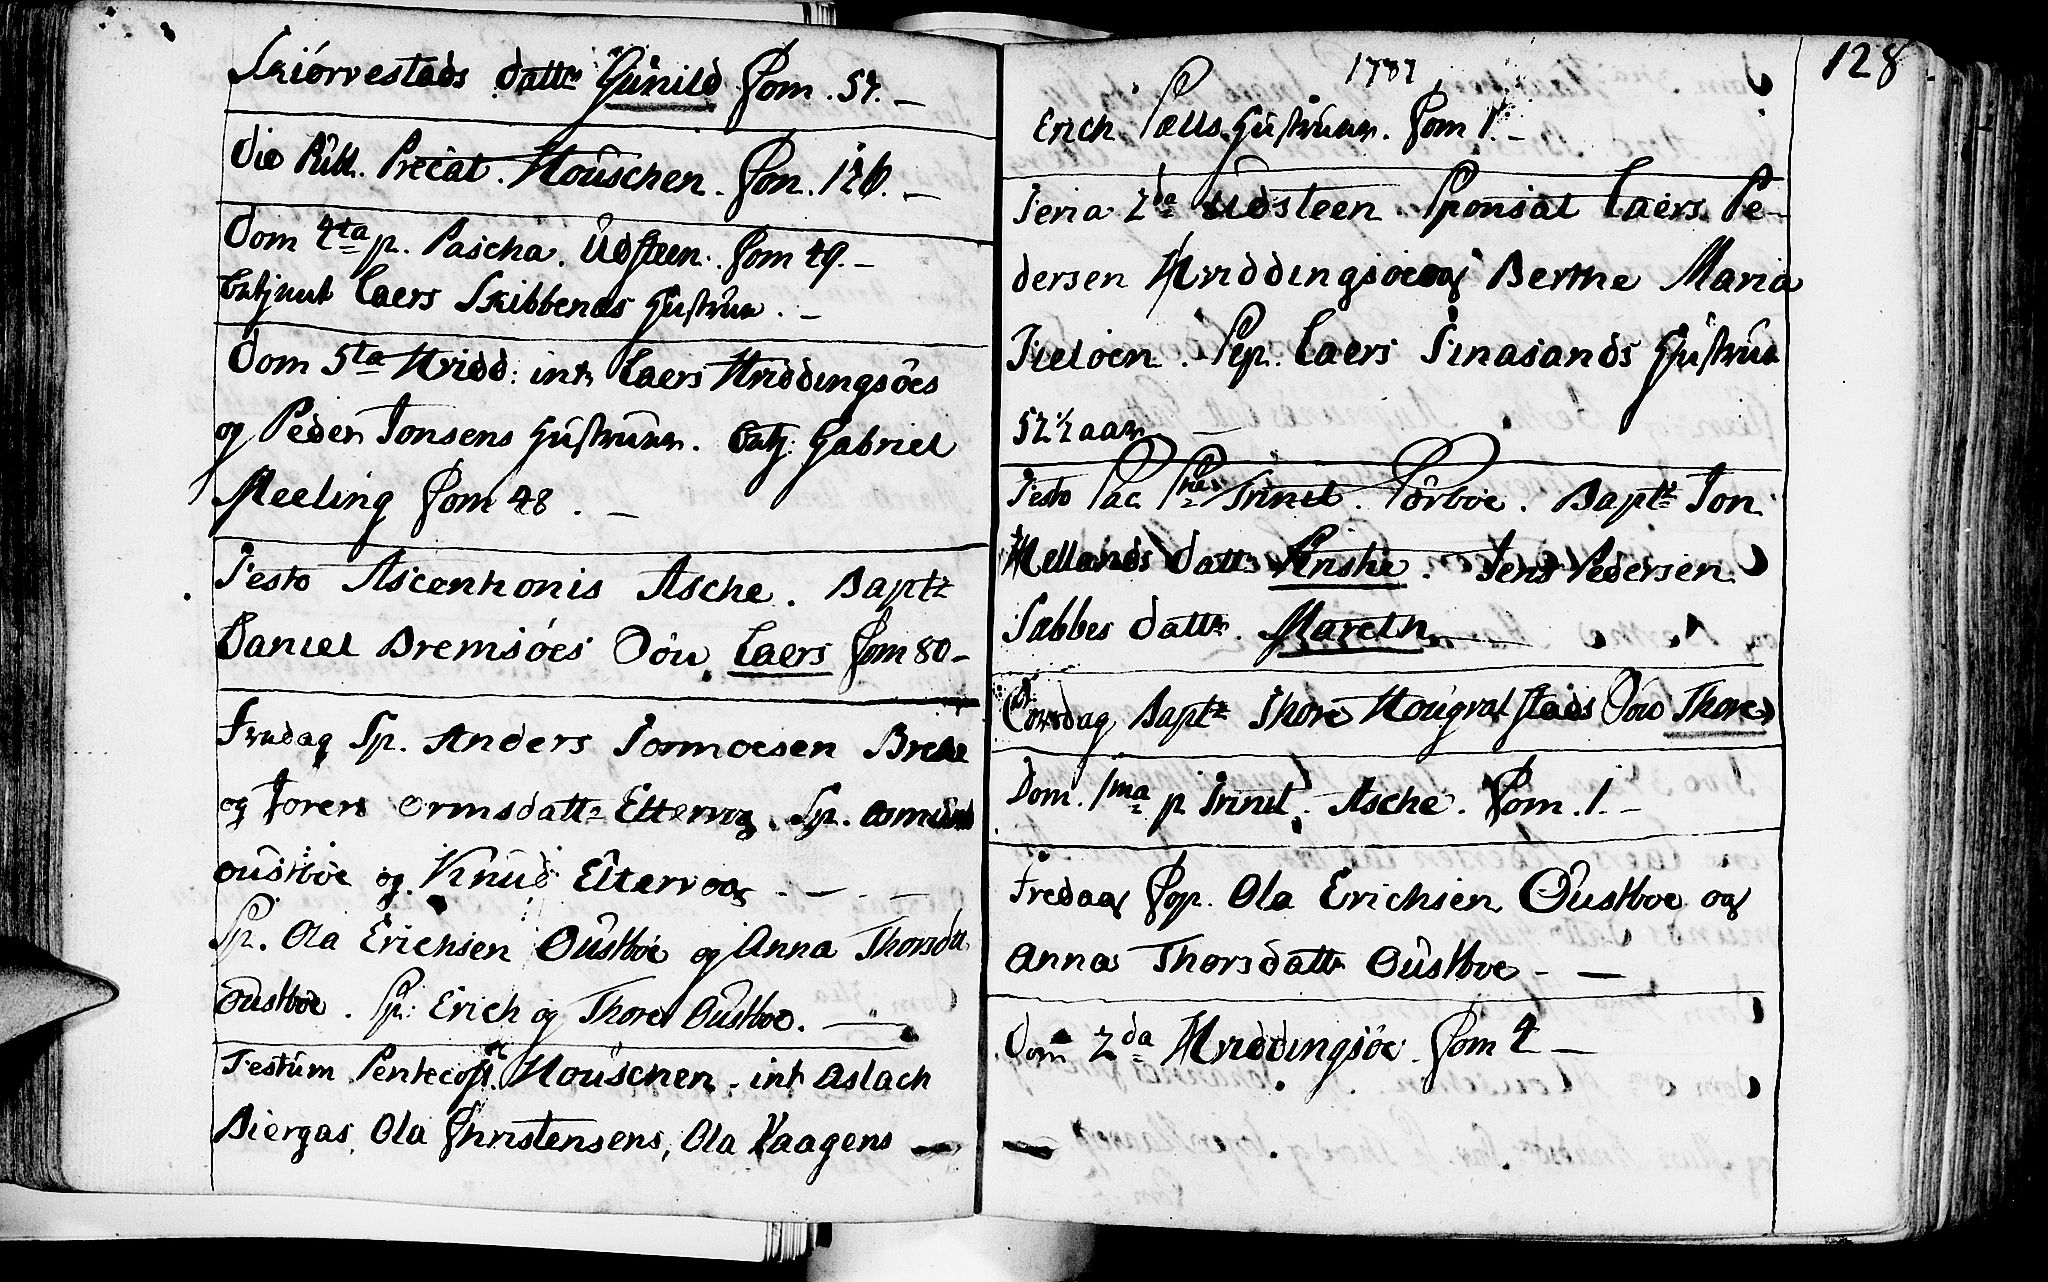 Skiørvestads datt. Gunild Com. 57. –
Die Publ. Precat. Houschen. Com. 126. –
Dom 4ta p. Pascha. Udsteen. Com 49. –
Laers Skibbenæs Hustrue. –
Dom 5ta Hvidd: int. Laers Hviddingsöes
og Peder Jonsens Hustruer. Gabriel
Meeling Com 48. –
Festo Ascentionis Asche. Bapt.
Daniel Bremsöes Sön Laers Com 80 –
Fredag Sp. Anders Tormoesen
og Toren Ormsdatt. Eltervog. Sp. Omund
Oustböe og Knud Eltervog – –
Sp. Ola Erichsen Oustböe og Anna Thorsdtt.
Oustböe. Sp: Erich og Thore Oustboe. –
Festum Pentecost. Houschen. int. Aslach
Biergas, Ola Christensens, Ola Vaagens –
128
1787
Erich Pells Hustruer. Com 1. –
Feria 2da Udsteen. Sponsal Laers Pe-
dersen Hviddingsöe og Berthe Maria
Fieloen. Sep. Laers Finasands Hustrue
52 1/2 aar –
Festo SSae Trinit. Sörboe. Bapt. Jon
Mellands datt. Kristie. Jens Pedersen
Sæbbes datt. Mareth –
Torsdag Bapt. Thore Hougvalstads Sön Thore
Dom. 1ma p Trinit. Asche. Com. 1. –
Fredag Cop. Ola Erichsen Oustboe og
Anna Thorsdatt. Oustboe – –
Dom 2da Hviddingsöe. Com 4 –